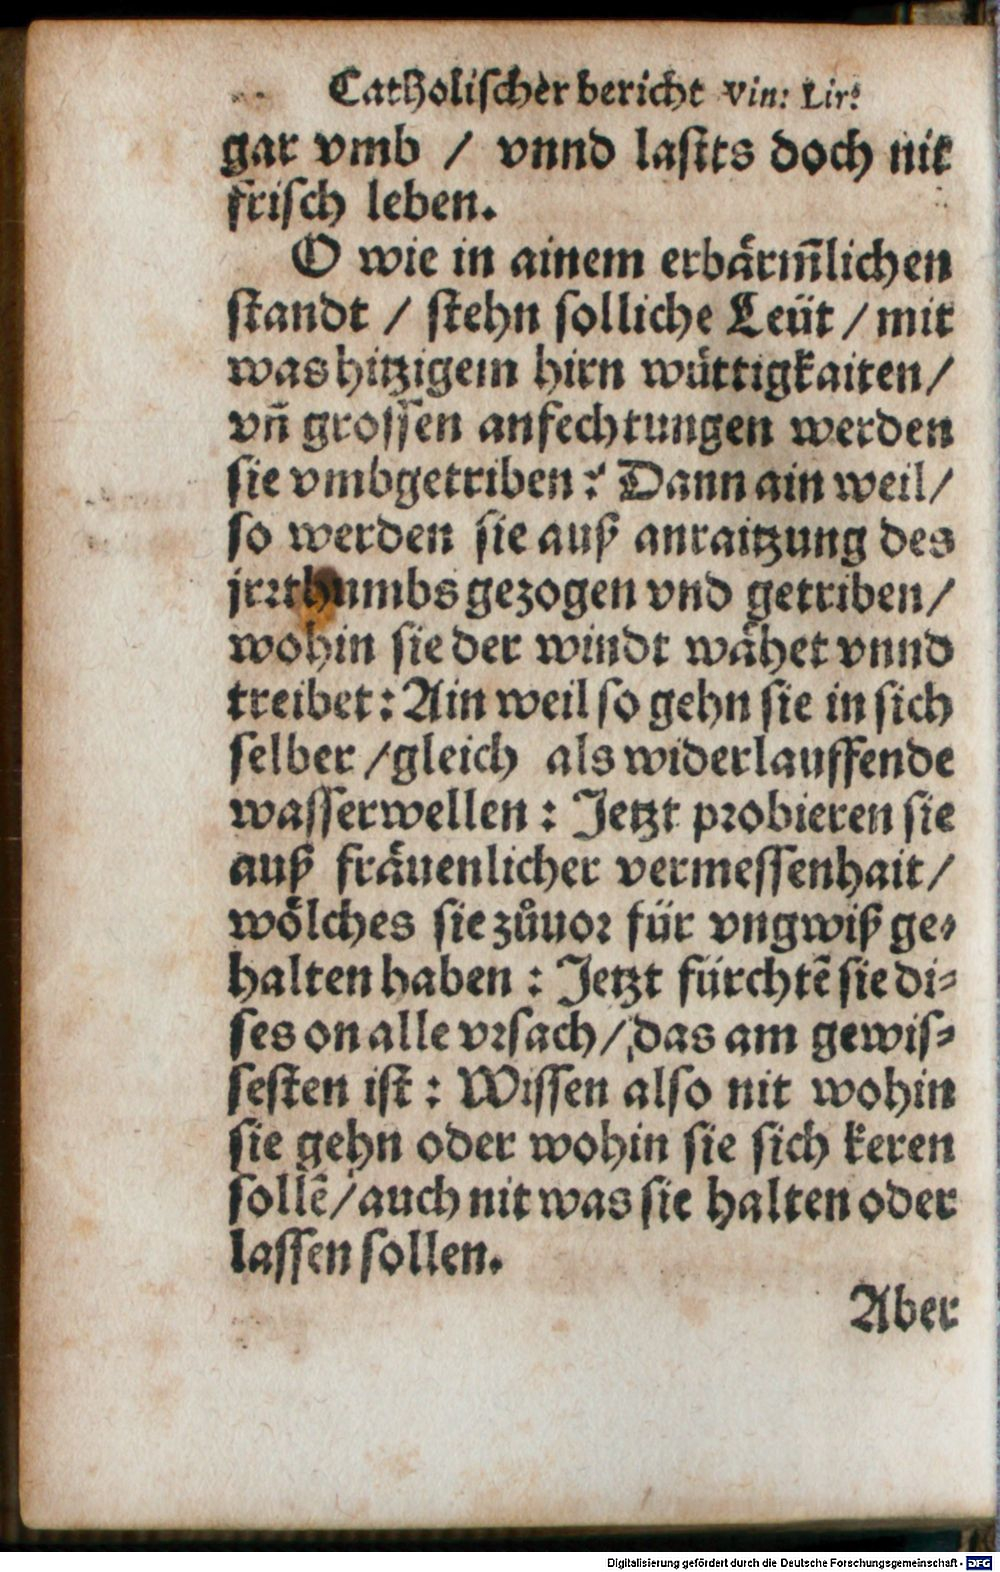 Catholischer bericht Vin: Lir:
gar vmb / vnnd lasts doch nit
frisch leben.
O wie in ainem erbaͤrm̃lichen
standt / stehn solliche Leüt / mit
was hitzigem hirn wuͤttigkaiten /
vñ grossen anfechtungen werden
sie vmbgetriben? Dann ain weil /
so werden sie auß anraitzung des
jrrthumbs gezogen vnd getriben /
wohin sie der windt waͤhet vnnd
treibet: Ain weil so gehn sie in sich
selber / gleich als widerlauffende
wasserwellen: Jetzt probieren sie
auß fraͤuenlicher vermessenhait /
woͤlches sie zůuor für vngwiß ge-
halten haben: Jetzt fürchtẽ sie di-
ses on alle vrsach / das am gewis-
sesten ist: Wissen also nit wohin
sie gehn oder wohin sie sich keren
sollẽ / auch nit was sie halten oder
lassen sollen.
Aber
Digitalisierung gefördert durch die Deutsche Forschungsgemeinschaft - DFG